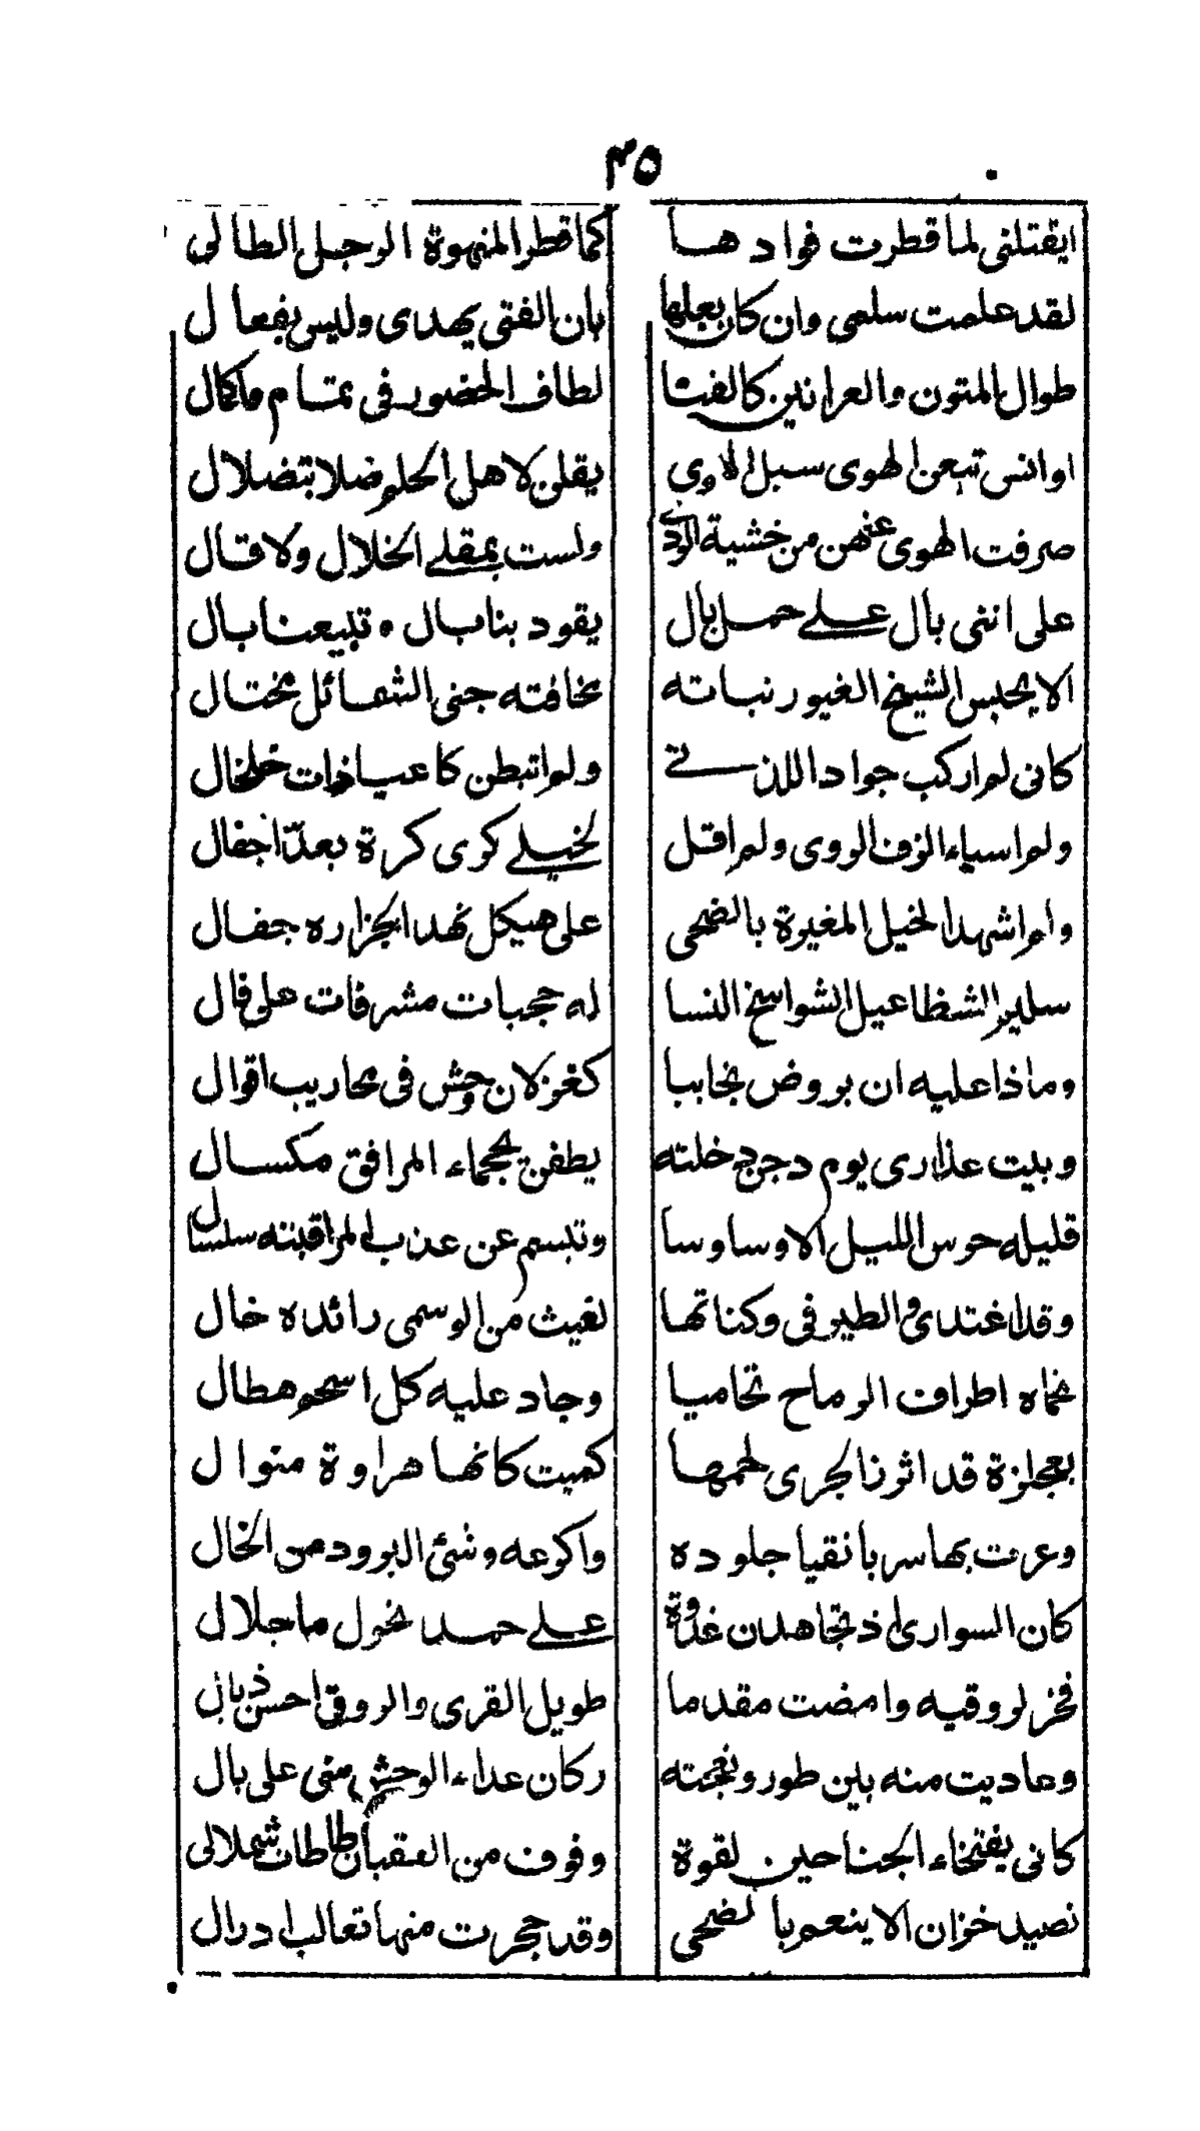 ٣٥
ايقتلنى لما قطرت فواد هسا كما قطر المنهوة الرجل الطالى
لقد علمت سلمى وان كان بعلها بان الفتى يهدى وليس بفعال
طوال المتون والعرانين كالفتا لطاف الخصور فى تمام وكمال
اوانس تتبعن الهوى سبل الردى يقلن لاهل الحلم ضلا بتضلال
صرفت الهوى عنهن من خشية الردى ولست بمقلے الخلال ولا قال
على اننى بال علے حمل بال يقود بنا بال وتبيعنا بال
الا يحبس الشيخ الغيور نباته مخافته جنى الشمائل مختال
كانى لم اركب جوادا للذتے ولم اتبطن كاعبا ذات خلخال
ولم اسباء الزق الروى ولم اقل لخيلے كرى كرة بعد اجفال
ولم اشهد الخيل المغيرة بالضحى على هيكل نهد الجزاره جفال
سليم الشظا عيل الشواسخ النسا له حجبات مشرفات على فال
وماذا عليه ان بروض نجابيا كغزلان وحش فى محاريب اقوال
وبيت عذارى يوم دجن دخلته يطفن بجماء المرافق مكسال
قليله حرس الليل الا وساوسا وتبسم عن عذب المراقبته سلسال
وقد اغتدى والطير فى وكناتها لغيث من الوسمى رائده خال
نحماه اطراف الرماح تحاميا وجاد عليه كل اسحم هطال
بعجلزة قد اثرنا لجرى لحمها كميت كانها هراوة منوال
وعرت بها سربا نقيا جلوده واكرعه وشئ البرود من الخال
كان السوارى اذ تجاهدن غدوة علے حمد نخول ما جلال
فخر لروقيه وامضت مقدما طويل القرى والروق احسن ذبال
وعاديت منه بين طور ونعجته ركان عداء الوحش منى على بال
كانى بفتخاء الجناحين لقوة وفوف من العقبان طاطات شملالى
نصيد خزان الا ينعم با لضحى وقد حجرت منها تعالب ادرال